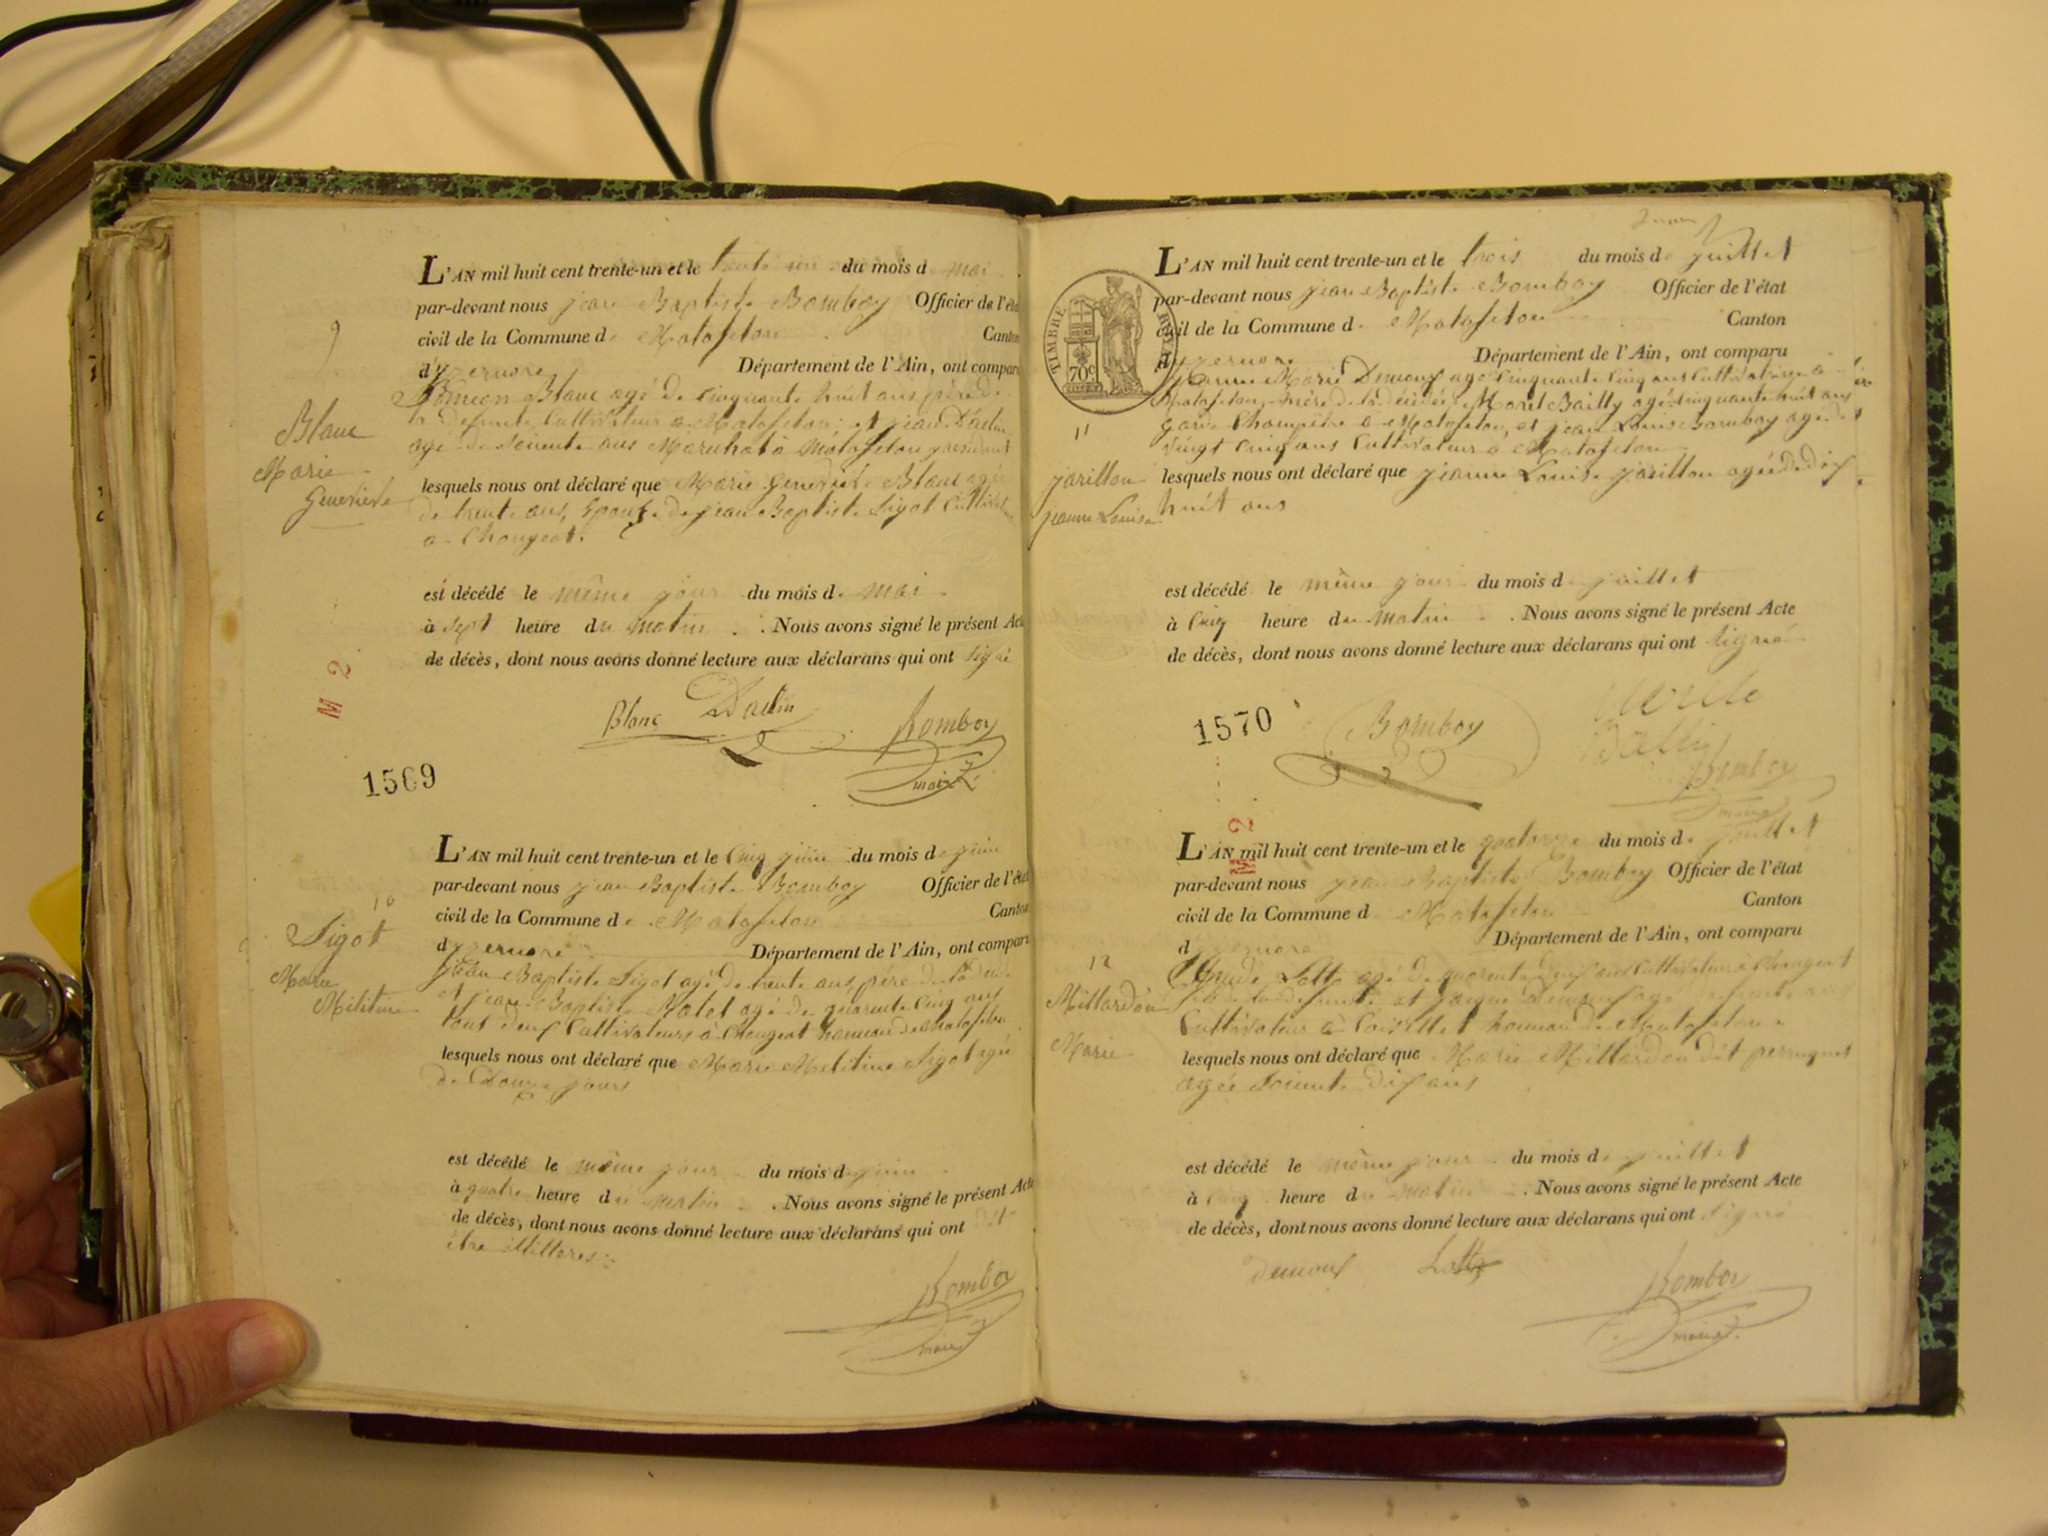 9
Blanc
Marie
Genevieve
L'AN mil huit cent trente-un et le trente un du mois d mai
par-devant nous jean Baptiste Bomboy Officier de l'éta
civil de la Commune de Matafelon Canton
d'yzernore Département de l'Ain, ont comparu
Blanc agé de cinquante huit ans père de
la defunte Cultivateur a Matafelon, et jean Daclin
agé de soixante ans Marechal à Matafelon
lesquels nous ont déclaré que Marie Genevieve Blanc agée
de trente ans, Epouse de jean Baptiste Sigot Cultivateur
a Chougeat.
est décédé le même jour du mois de mai
à sept heure du matin . Nous avons signé le présent Acte
de décès, dont nous avons donné lecture aux déclarans qui ont signé
M 2
Blanc Daclin Bomboy
maire
1569
10
Sigot
Marie
Melitine
L'AN mil huit cent trente-un et le cinq juin du mois de juin
par-devant nous jean Baptiste Bomboy Officier de l'état
civil de la Commune de Matafelon Canton
d'yzernore Département de l'Ain, ont comparu
jean Baptiste Sigot agé de trente ans père de la
et jean Baptiste agé de quarente cinq ans
tout deux Cultivateurs à Chougeat hameau de Matafelon
lesquels nous ont déclaré que Marie Melitine Sigot agée
de Douze jours
est décédé le même jour du mois de juin
à quatre heure du matin . Nous avons signé le présent Acte
de décès, dont nous avons donné lecture aux déclarans qui ont dit
être illitteres
Bomboy
maire
TIMBRE ROYAL
70c
11
jarillon
jeanne Louise
L'AN mil huit cent trente-un et le trois du mois de juillet
par-devant nous jean Baptiste Bomboy Officier de l'état
civil de la Commune de Matafelon Canton
d'yzernore Département de l'Ain, ont comparu
Marie agé cinquante cinq ans Cultivatrice a
Matafelon, mère de la décédée, Bailly agé cinquante huit ans
garde Champêtre a Matafelon, et jean Louis Bomboy agé de
vingt cinq ans Cultivateur a Matafelon
lesquels nous ont déclaré que jeanne Louise jarillon agée de dix
huit ans
est décédé le même jour du mois de juillet
à cinq heure du matin . Nous avons signé le présent Acte
de décès, dont nous avons donné lecture aux déclarans qui ont signé
1570
Bomboy
Bomboy
maire
M 2
12
Millardon
Marie
L'AN mil huit cent trente-un et le quatorze du mois de juillet
par-devant nous jean Baptiste Bomboy Officier de l'état
civil de la Commune d Matafelon Canton
d yzernore Département de l'Ain, ont comparu
agé de quarente deux ans Cultivateur à Chougeat
de la defunte et agé de trente ans
Cultivateur à Coisellet hameau de Matafelon
lesquels nous ont déclaré que Marie Millardon dit
agée soixante dix ans
est décédé le même jour du mois de juillet
à cinq heure du matin . Nous avons signé le présent Acte
de décès, dont nous avons donné lecture aux déclarans qui ont signé
Bomboy
maire